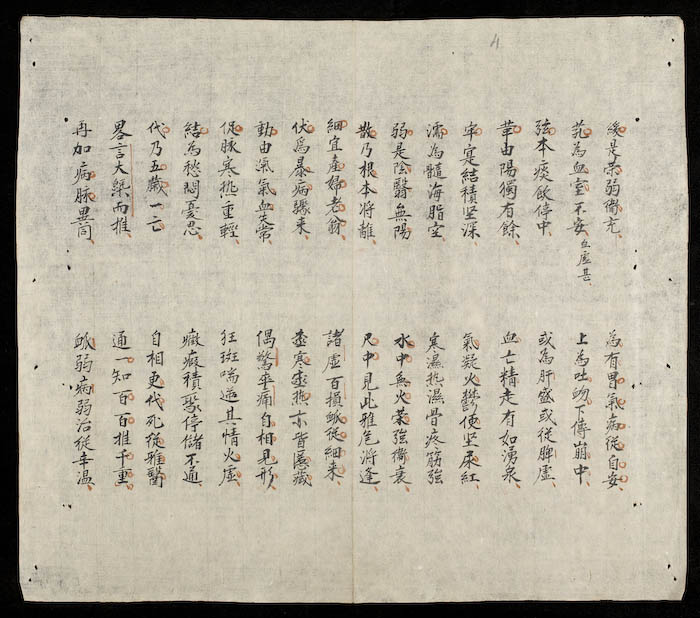 緩是榮弱衛充 為有胃氣病從自安
芤為血室不安 血虛甚 上為吐衂下傳崩中
弦本痰飲停中 或為肝盛或從脾虛
革由陽獨有餘 血亡精走有如湧泉
牢寔結積坚深 氣凝火鬱便坚尿紅
濡為髓海脂空 寒濕热濕骨疼筋強
弱是陰翳無陽 水中無火榮強衛衰
散乃根本将離 尺中見此雅危将逢
細宜產婦老翁 諸虛百損衇從細来
伏為暴病驟来 寒热亦皆匿藏
動由氣氣血失常 偶驚卒痛自相見形
促脉寒热重輕 狂斑喘逆其情火虛
結為愁悶憂思 癥瘕積聚停儲不通
代乃五臓一亡 自相更代死從雅醫
畧言大槩而推 通一知百百推千重
再加病脉異同 衇弱病弱治從辛温